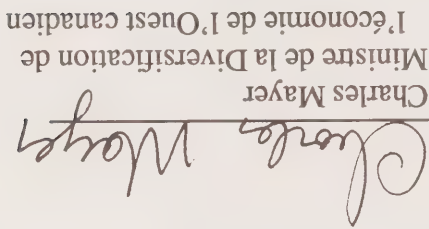 Charles Mayer
Charles Mayer
Ministre de la Diversification de
l'économie de l'Ouest canadien